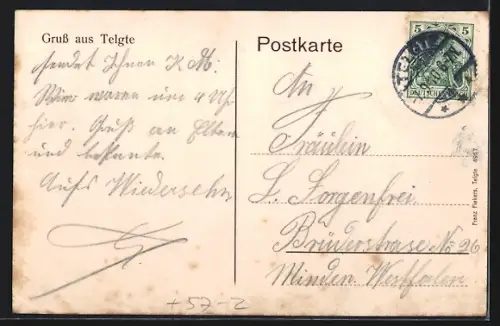 Gruß aus Telgte
sendet Ihnen K M.
Wir waren um 4 Uhr
hier. Gruß an Eltern
und bekannte.
Aufs Wiedersehn
Postkarte
An
Fräulein
L. Sorgenfrei
Brüderstrase No 26
Minden Westfalen
5 5
DEUTSCHES REICH
TELGTE
Franz Finkern, Telgte 4957
+57-2